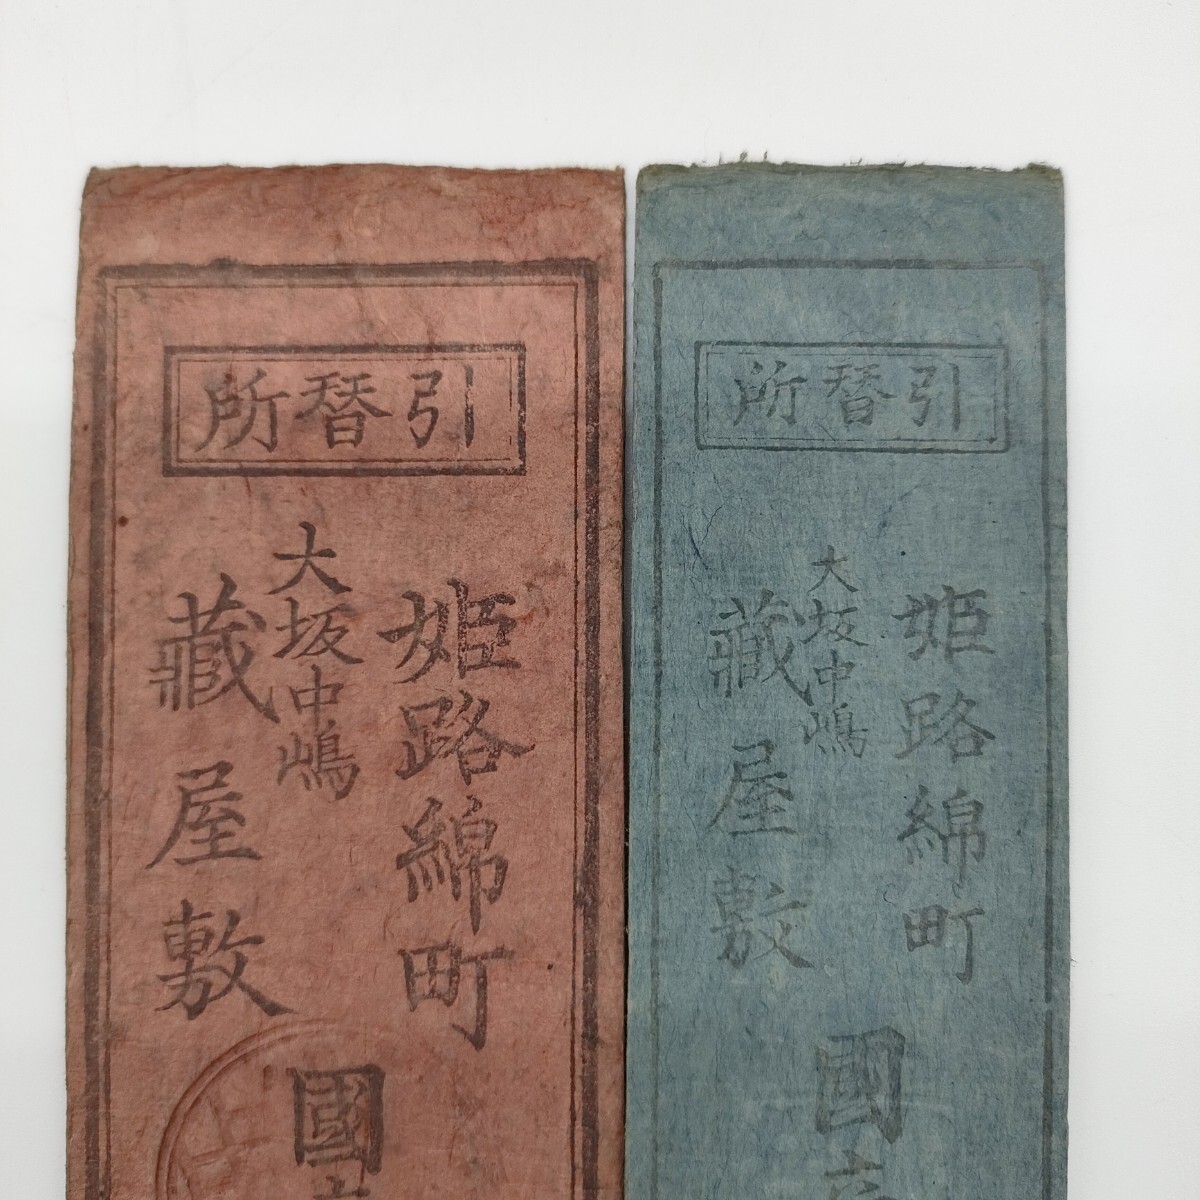 引替所
姫路綿町
大坂中嶋
藏屋敷
國
引替所
姫路綿町
大坂中嶋
藏屋敷
國